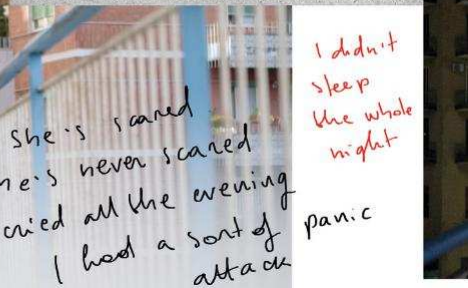 She's scared
he's never scared
cried all the evening
I had a sort of panic
attack
I didn't
sleep
the whole
night